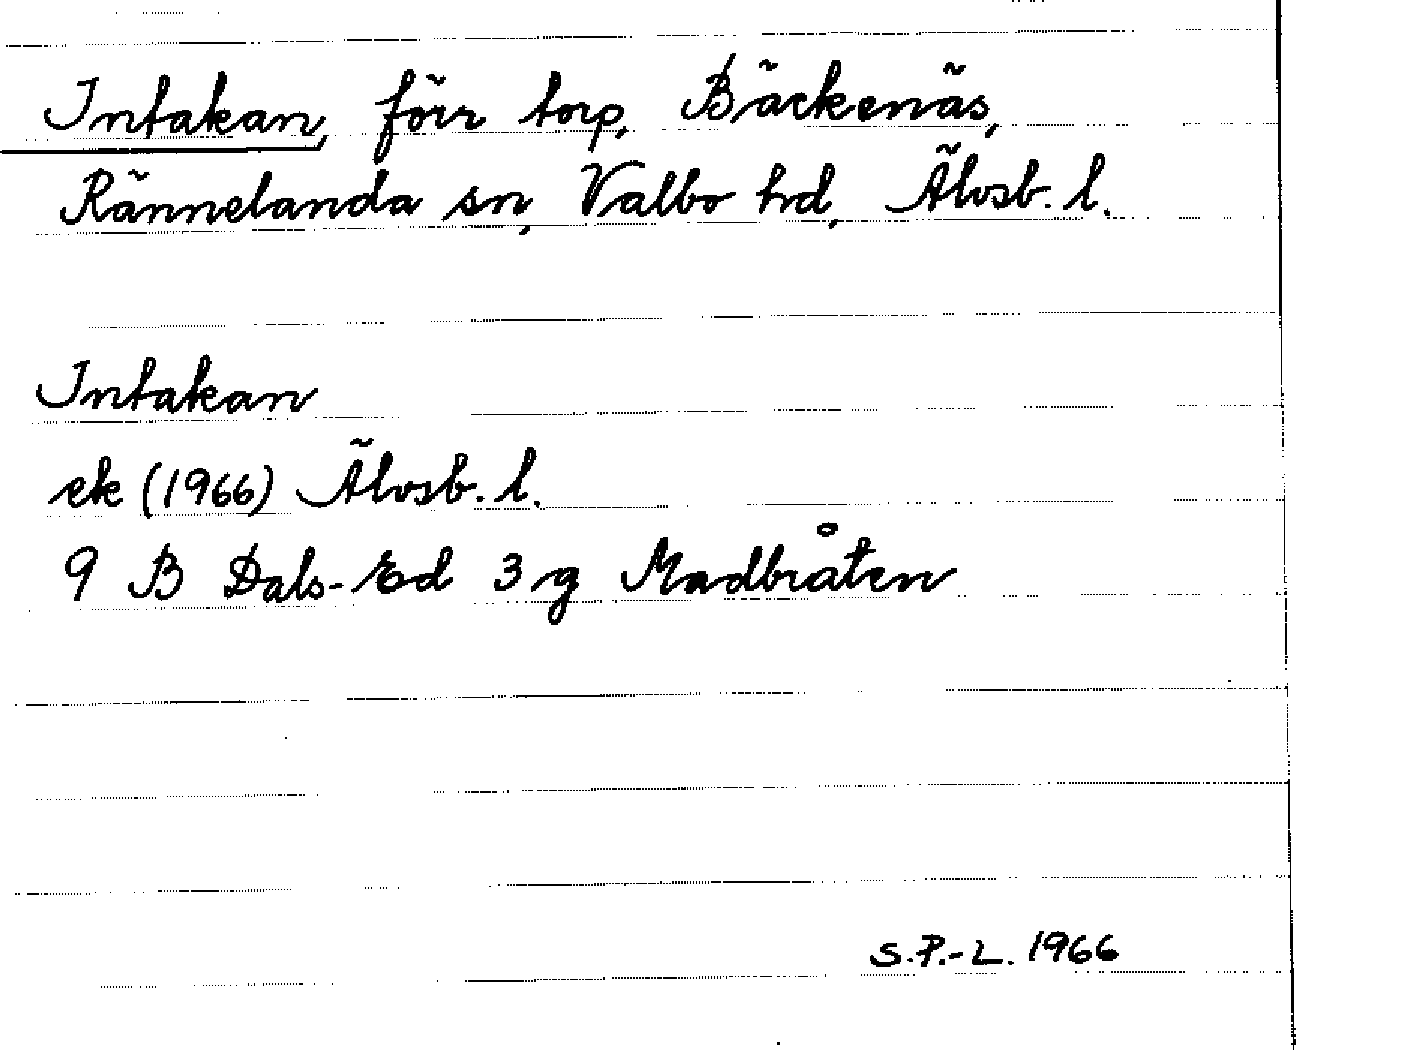 Intakan, förr torp, Bäckenäs,
Rännelanda sn, Valbo hd, Älvsb. l.
Intakan
ek (1966) Älvsb. l.
9 B Dals-Ed 3 g Madbråten
S.P.-L. 1966